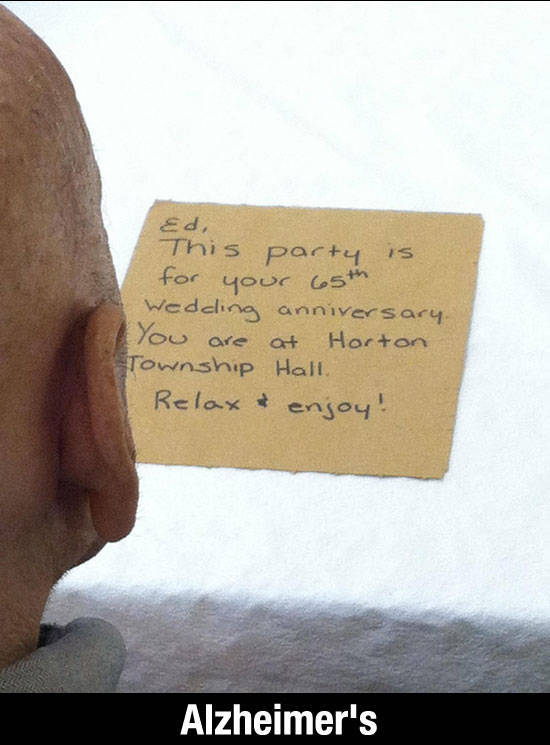 Ed,
This party is
for your 65th
Wedding anniversary.
You are at Horton
Township Hall.
Relax & enjoy!
Alzheimer's